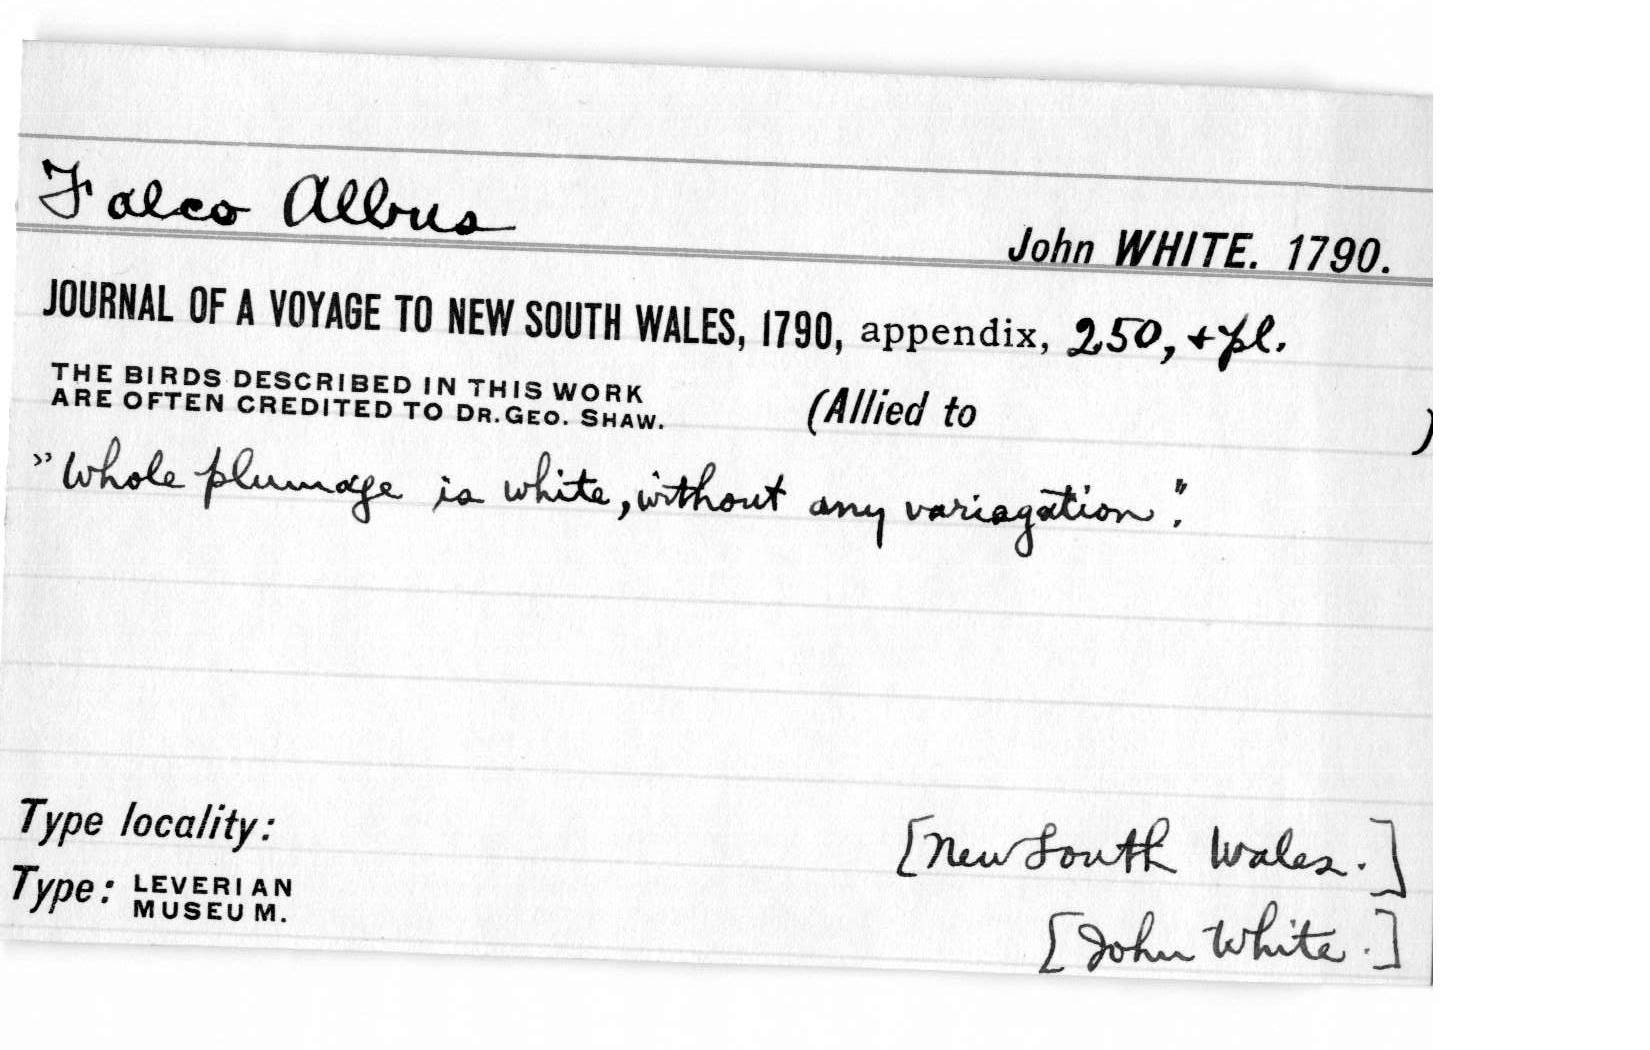 Falco Albus
John WHITE. 1790.
JOURNAL OF A VOYAGE TO NEW SOUTH WALES, 1790, appendix, 250, + pl.
THE BIRDS DESCRIBED IN THIS WORK
ARE OFTEN CREDITED TO DR. GEO. SHAW.
(Allied to )
"Whole plumage is white, without any variagation".
Type locality:
[New South Wales.]
Type: LEVERIAN
MUSEUM.
[John White.]